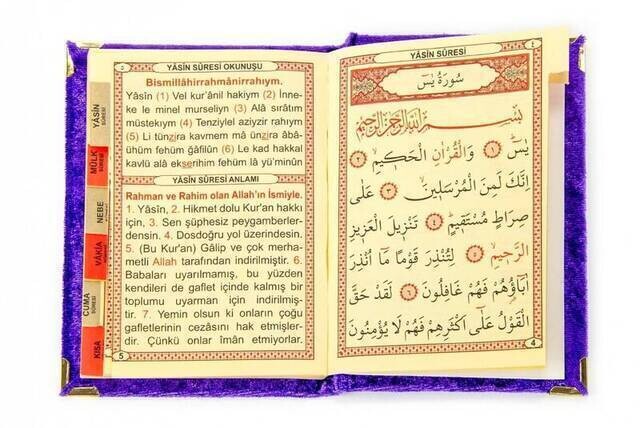 YÂSİN SÛRESİ OKUNUŞU
Bismillâhirrahmânirrahıym.
Yâsîn (1) Vel kur'ânil hakiym (2) İnne-
ke le minel murseliyn (3) Alâ sırâtım
müstekıym (4) Tenziylel aziyzir rahıym
(5) Li tünzira kavmem mâ ünzira âbâ-
ühüm fehüm ğâfilûn (6) Le kad hakkal
kavlü alâ ekserihim fehüm lâ yü'minûn
YÂSİN SÛRESİ ANLAMI
Rahman ve Rahim olan Allah'ın İsmiyle.
1. Yâsîn, 2. Hikmet dolu Kur'an hakkı
için, 3. Sen şüphesiz peygamberler-
densin. 4. Dosdoğru yol üzerindesin.
5. (Bu Kur'an) Gâlip ve çok merha-
metli Allah tarafından indirilmiştir. 6.
Babaları uyarılmamış, bu yüzden
kendileri de gaflet içinde kalmış bir
toplumu uyarman için indirilmiş-
tir. 7. Yemin olsun ki onların çoğu
gafletlerinin cezasını hak etmişler-
dir. Çünkü onlar îmân etmiyorlar.
5
YÂSİN
SÛRESİ
MÜLK
SÛRESİ
NEBE
VÂKIA
CUMA
SÛRESİ
KISA
YÂSİN SÛRESİ
سُورَةُ يٰسٓ
بِسْمِ اللّٰهِ الرَّحْمٰنِ الرَّحِيمِ
يٰسٓ ﴿١﴾ وَالْقُرْاٰنِ الْحَكِيمِ ﴿٢﴾
اِنَّكَ لَمِنَ الْمُرْسَلِينَ ﴿٣﴾ عَلٰى
صِرَاطٍ مُسْتَقِيمٍ ﴿٤﴾ تَنْزِيلَ الْعَزِيزِ
الرَّحِيمِ ﴿٥﴾ لِتُنْذِرَ قَوْمًا مَٓا اُنْذِرَ
اٰبَٓاؤُهُمْ فَهُمْ غَافِلُونَ ﴿٦﴾ لَقَدْ حَقَّ
الْقَوْلُ عَلٰٓى اَكْثَرِهِمْ فَهُمْ لَا يُؤْمِنُونَ
4